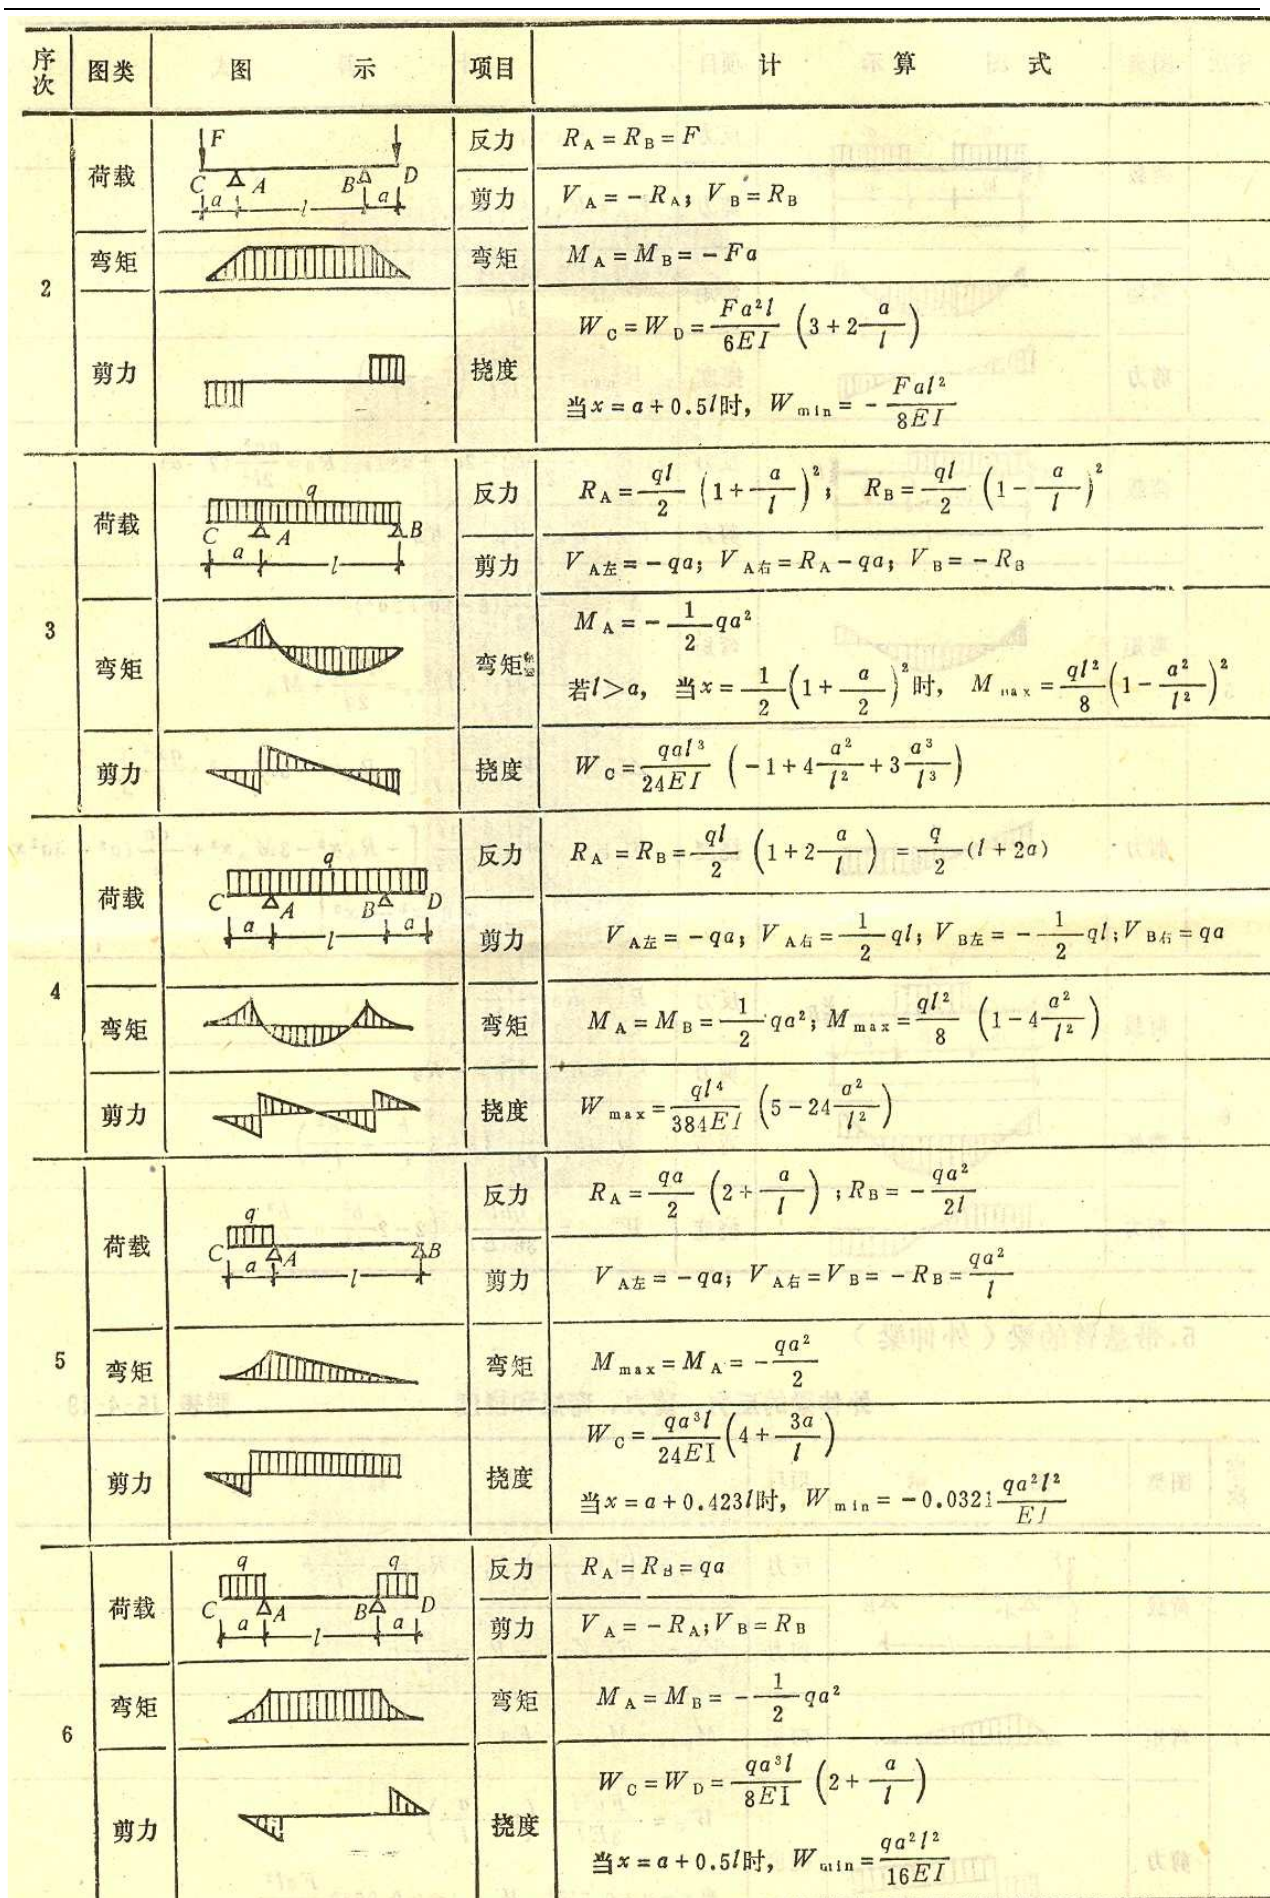 序次 图类 图 示 项目 计 算 式
2
荷载
F
C A B D
a l a
反力 R_A = R_B = F
剪力 V_A = -R_A; V_B = R_B
弯矩 弯矩 M_A = M_B = -Fa
剪力 挠度 W_C = W_D = \frac{Fa²l}{6EI} (3 + 2\frac{a}{l})
当x = a + 0.5l时, W_min = -\frac{Fal²}{8EI}
3
荷载
q
C A B
a l
反力 R_A = \frac{ql}{2} (1 + \frac{a}{l})²; R_B = \frac{ql}{2} (1 - \frac{a}{l})²
剪力 V_A左 = -qa; V_A右 = R_A - qa; V_B = -R_B
弯矩 弯矩 M_A = -\frac{1}{2}qa²
若l>a, 当x = \frac{1}{2}(1 + \frac{a}{2})²时, M_max = \frac{ql²}{8}(1 - \frac{a²}{l²})²
剪力 挠度 W_C = \frac{qal³}{24EI} (-1 + 4\frac{a²}{l²} + 3\frac{a³}{l³})
4
荷载
q
C A B D
a l a
反力 R_A = R_B = \frac{ql}{2} (1 + 2\frac{a}{l}) = \frac{q}{2}(l + 2a)
剪力 V_A左 = -qa; V_A右 = \frac{1}{2}ql; V_B左 = -\frac{1}{2}ql; V_B右 = qa
弯矩 弯矩 M_A = M_B = \frac{1}{2}qa²; M_max = \frac{ql²}{8} (1 - 4\frac{a²}{l²})
剪力 挠度 W_max = \frac{ql⁴}{384EI} (5 - 24\frac{a²}{l²})
5
荷载
q
C A B
a l
反力 R_A = \frac{qa}{2} (2 + \frac{a}{l}); R_B = -\frac{qa²}{2l}
剪力 V_A左 = -qa; V_A右 = V_B = -R_B = \frac{qa²}{l}
弯矩 弯矩 M_max = M_A = -\frac{qa²}{2}
剪力 挠度 W_C = \frac{qa³l}{24EI}(4 + \frac{3a}{l})
当x = a + 0.423l时, W_min = -0.0321\frac{qa²l²}{EI}
6
荷载
q q
C A B D
a l a
反力 R_A = R_B = qa
剪力 V_A = -R_A; V_B = R_B
弯矩 弯矩 M_A = M_B = -\frac{1}{2}qa²
剪力 挠度 W_C = W_D = \frac{qa³l}{8EI} (2 + \frac{a}{l})
当x = a + 0.5l时, W_min = \frac{qa²l²}{16EI}